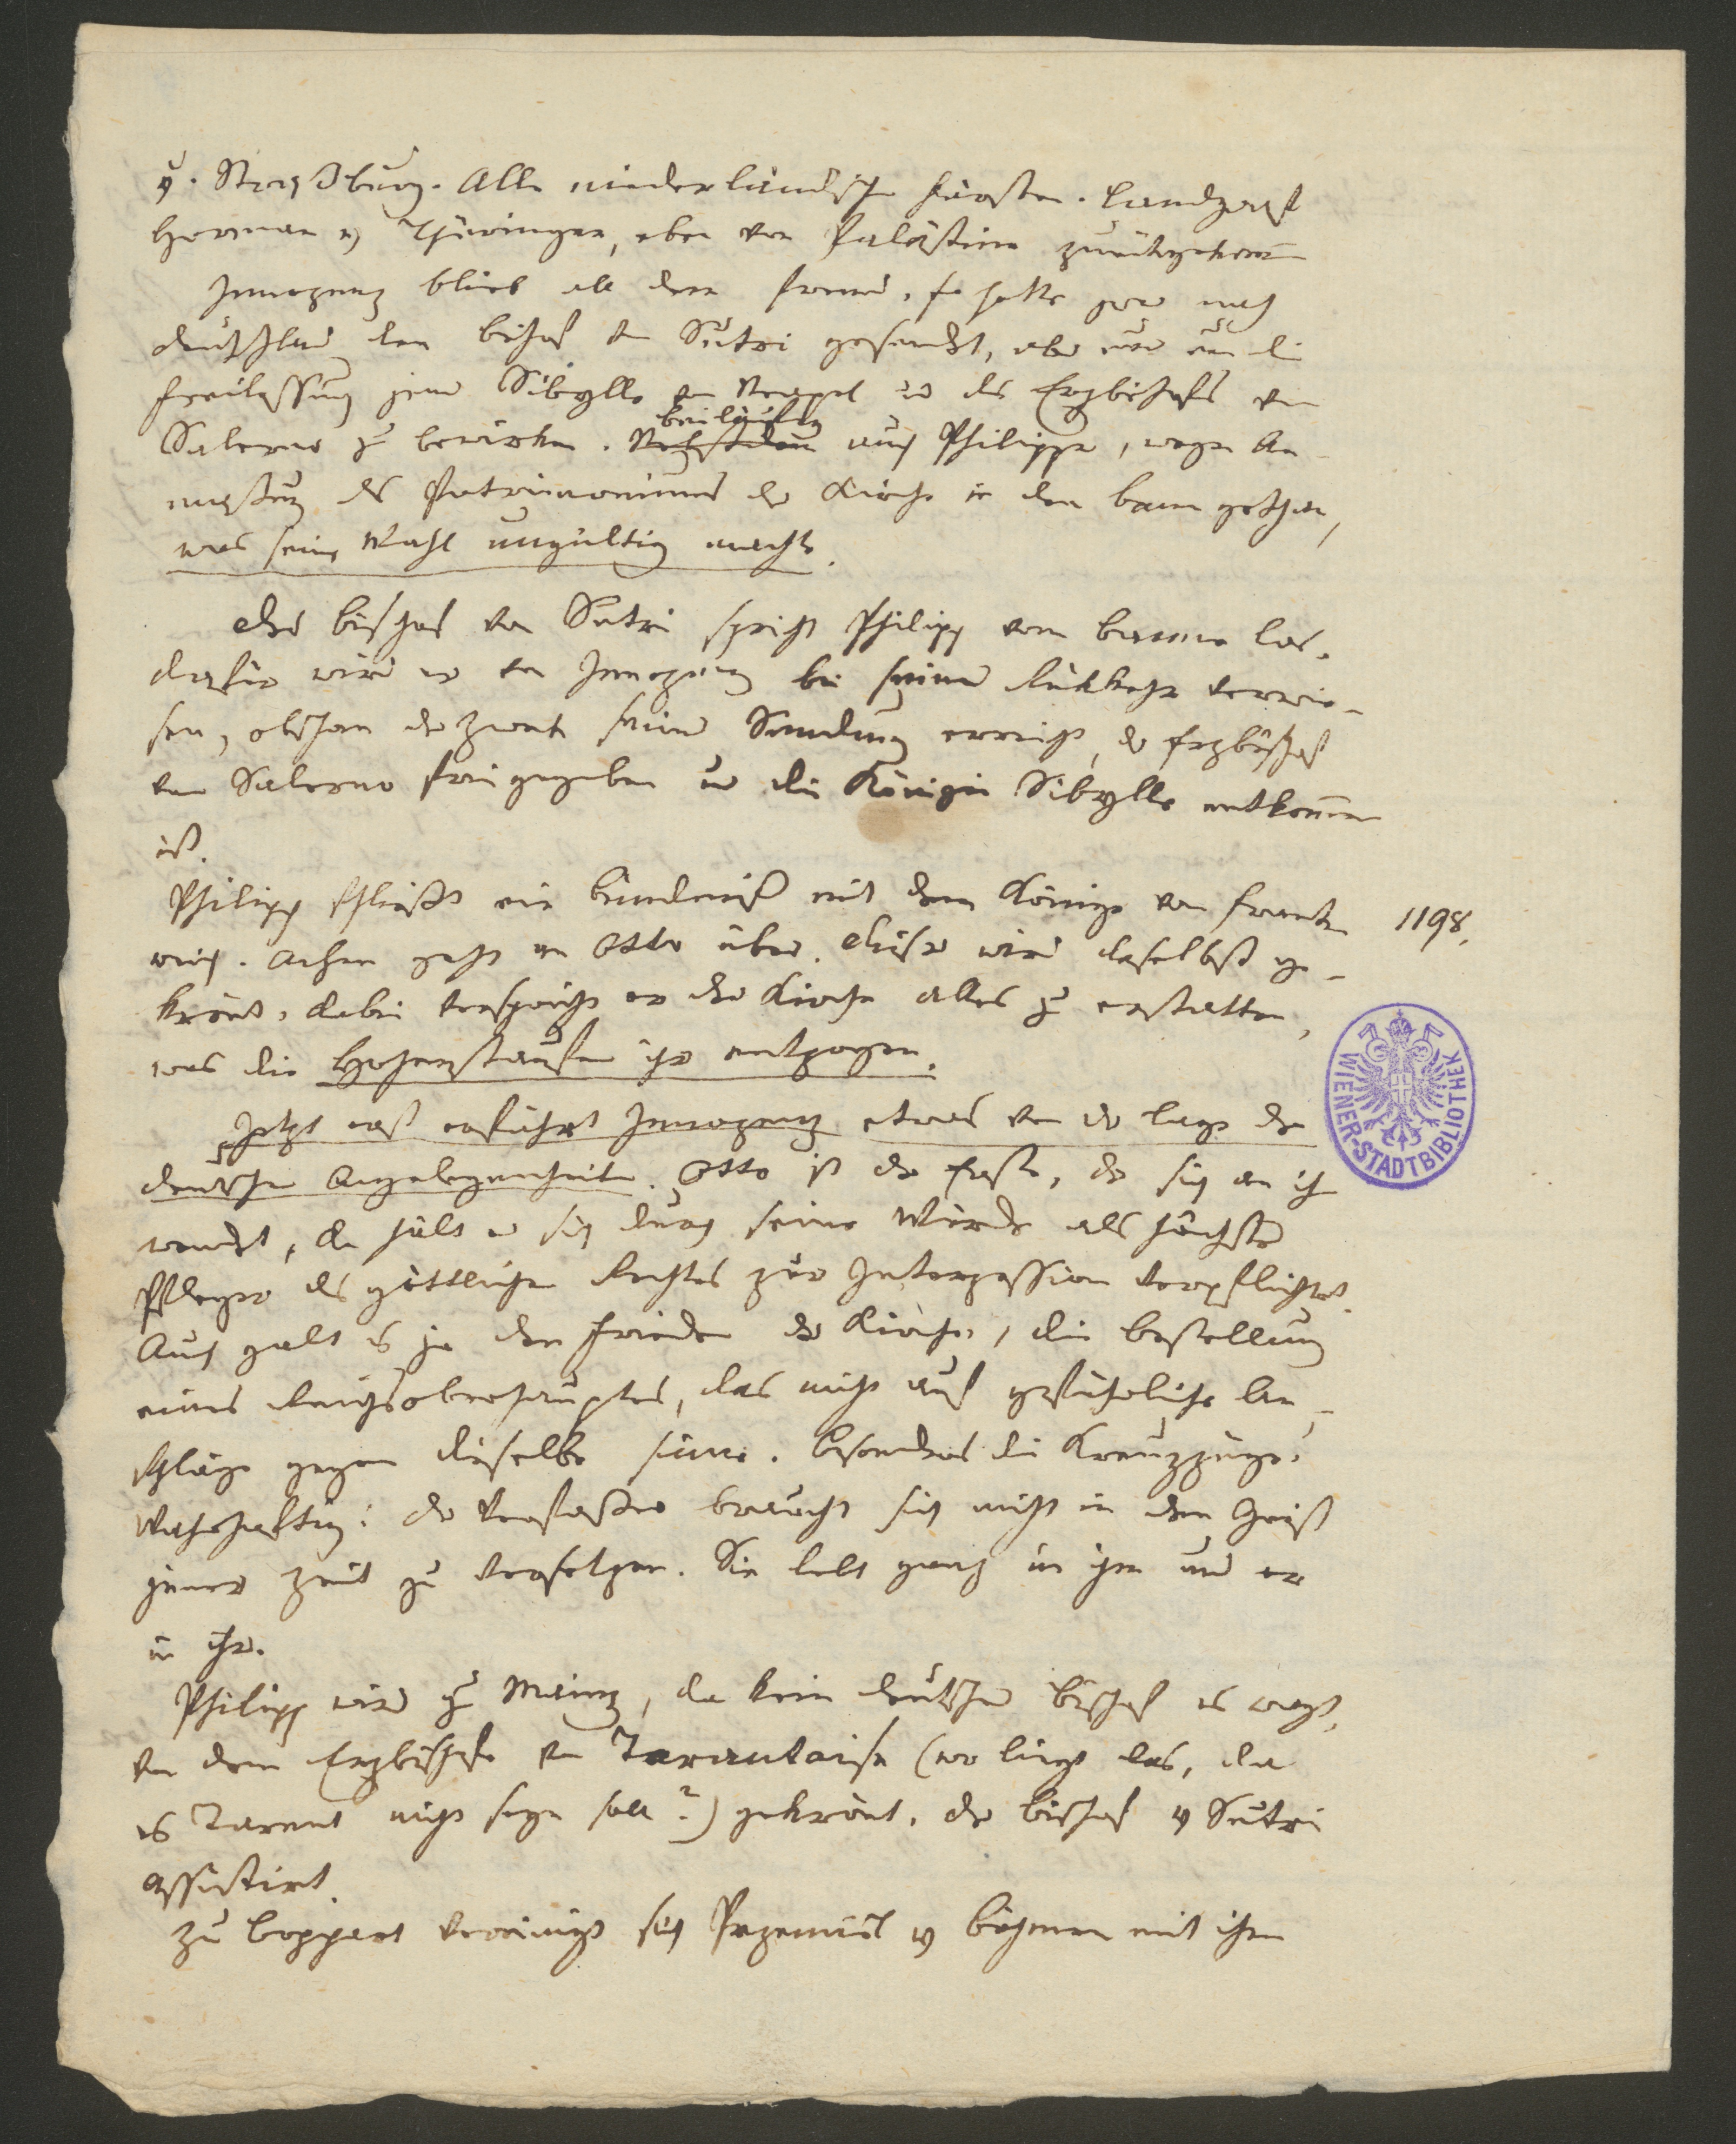 v. Straßburg. Alle niederländische Fürsten. Landgraf
Herman v Thüringen, eben von Palästina zurückgekomen
Innozenz blieb all dem fremd. Er hatte zwar nach
Deutschland den Bischof von Sutri gesandt, aber nur um die
Freilassung jener Sibylle von Neapel und des Erzbischofs von
Salerno zu bewirken. beiläufig
auch Philipp, wegen An
maßung des Patrimoniums der Kirche in den Bann gethan,
was seine Wahl ungültig machte.
Der Bischof von Sutri spricht Philipp vom Banne los.
dafür wird er von Innozenz bei seiner Rükkehr verwie-
sen, obschon der Zweck seiner Sendung erreicht, der Erzbischof
von Salerno freigegeben und die Königin Sibylle entkommen
ist.
Philipp schließt ein Bündniß mit dem Könige von Frank
1198.
reich. Achen geht an Otto über. Dieser wird daselbst ge-
krönt, dabei verspricht er der Kirche alles zu erstatten,
was die Hohenstaufen ihr entzogen.
Jetzt erst erfährt Innozenz etwas von der Lage der
deutschen Angelegenheiten. Otto ist der Erste, der sich an ihn
wendet, da hält er sich durch seine Würde als höchster
Pfleger des göttlichen Rechtes zur Interzession verpflichtet.
Auch galt es ja den Frieden der Kirche, die Bestellung
eines Reichsoberhauptes, das nicht auf gefährliche An-
schläge gegen dieselbe sinne. Besonders die Kreuzzüge.
Wahrhaftig: der Verfasser braucht sich nicht in den Geist
jener Zeit zu versetzen. Sie lebt ganz in ihm und er
in ihr.
Philipp wird zu Mainz, da kein deutscher Bischof es wagt,
von dem Erzbischofe von Tarantaise (wo liegt das, da
es Tarent nicht seyn soll?) gekrönt. Der Bischof v Sutri
assistirt.
Zu Boppart vereinigt sich Przemisl v Böhmen mit ihm
WIENER-STADTBIBLIOTHEK